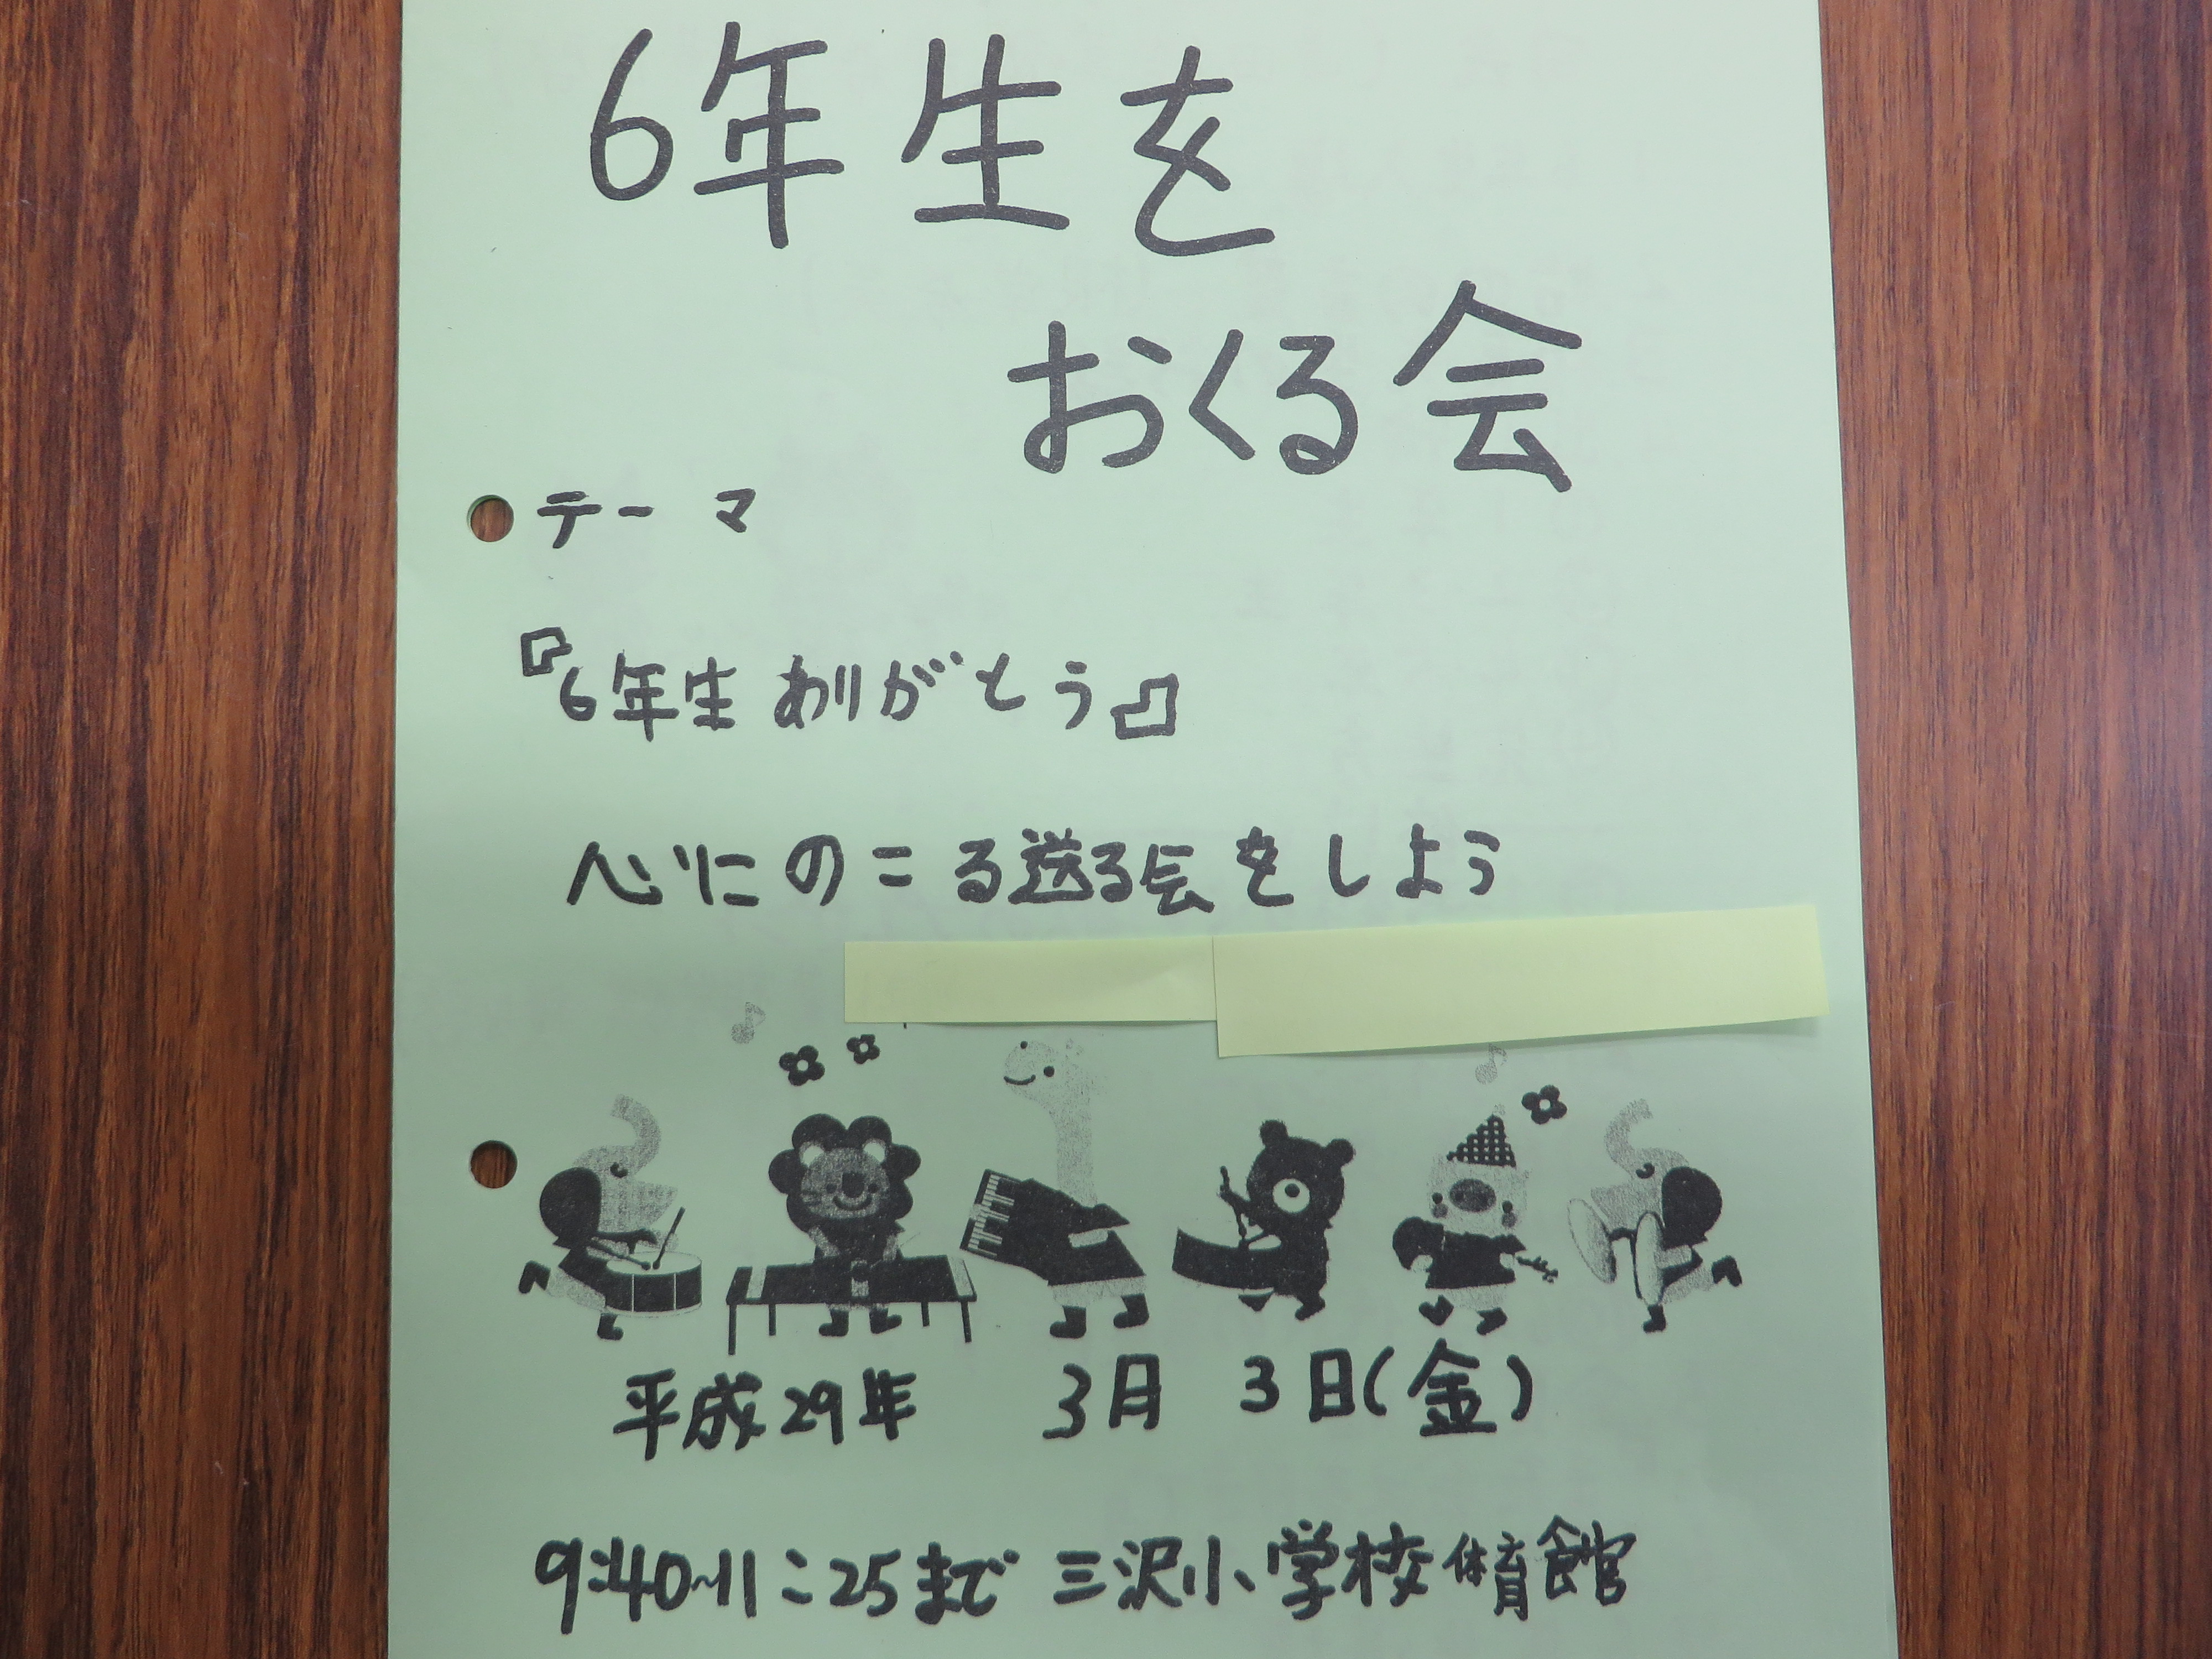 6年生を
おくる会
テーマ
『6年生ありがとう』
心にのこる送る会をしよう
平成29年 3月 3日(金)
9:40~11:25まで 三沢小学校体育館